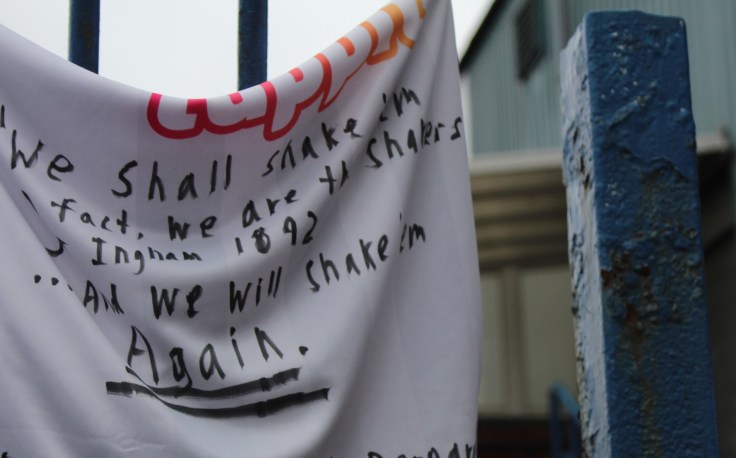 "We shall shake 'em
fact, we are the Shakers
J Ingham 1892
...And we will shake 'em
Again.